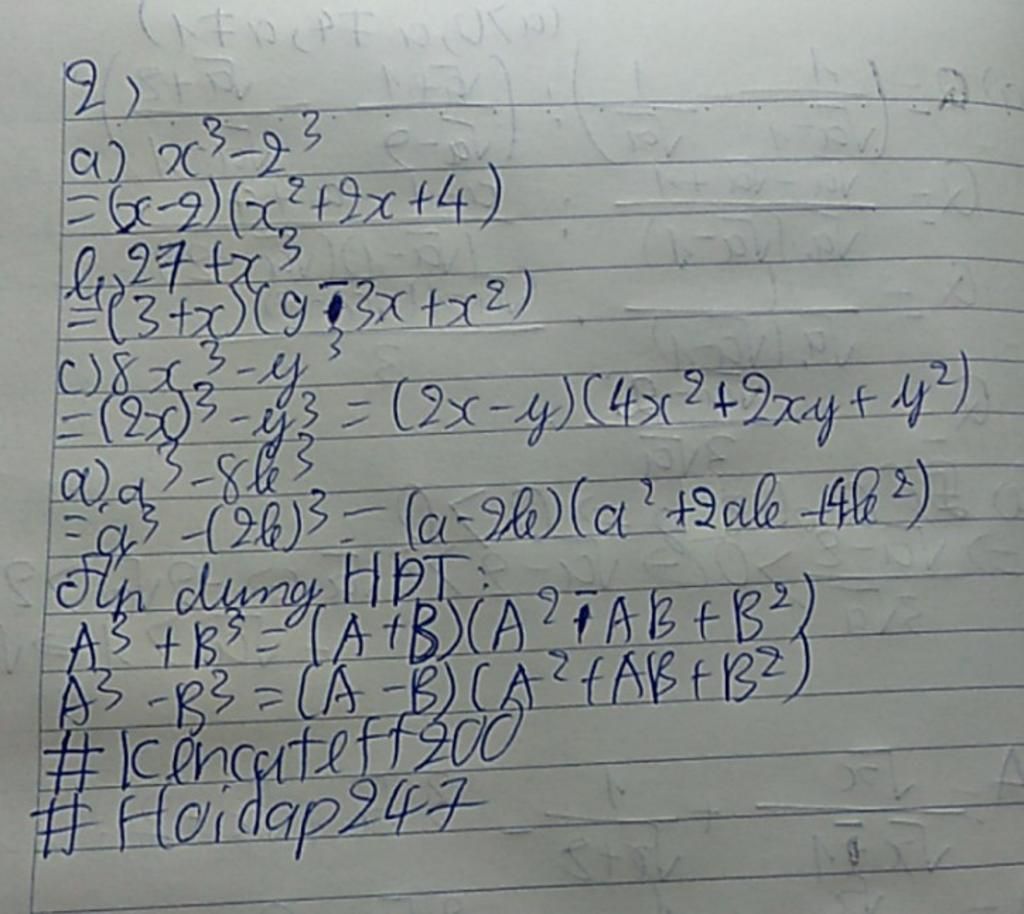 2)
a) x³-2³
=(x-2)(x²+2x+4)
b, 27+x³
=(3+x)(9-3x+x²)
c) 8x³-y³
=(2x)³-y³=(2x-y)(4x²+2xy+y²)
a) a³-8b³
=a³-(2b)³=(a-2b)(a²+2ab+4b²)
Áp dụng HĐT:
A³+B³=(A+B)(A²-AB+B²)
A³-B³=(A-B)(A²+AB+B²)
#Kencateff200
#Hoidap247